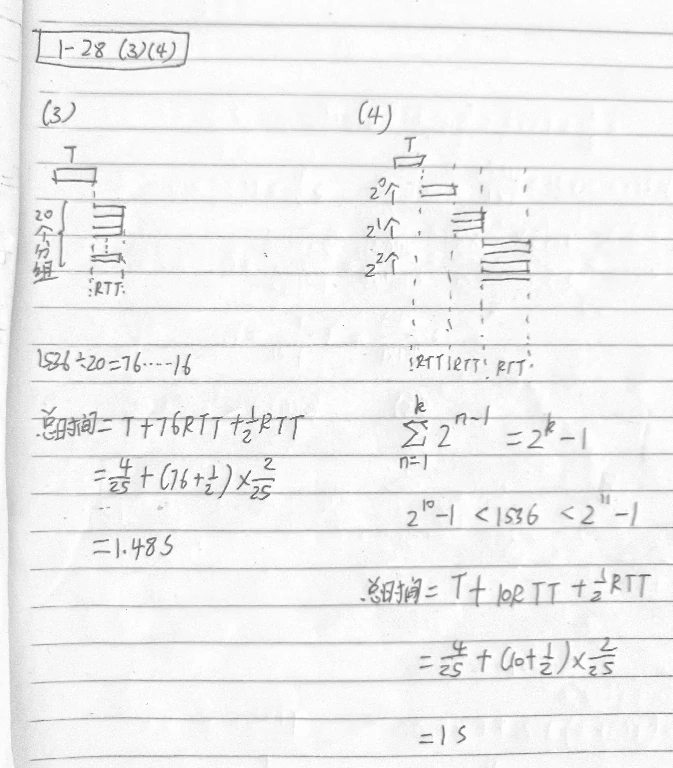 1-28 (3)(4)
(3)
T
20个分组
RTT
1536÷20=76……16
总时间=T+76RTT+½RTT
=4/25+(76+½)×2/25
=1.48S
(4)
T
2⁰个
2¹个
2²个
RTT RTT RTT
k
∑ 2ⁿ⁻¹ =2ᵏ-1
n=1
2¹⁰-1<1536<2¹¹-1
总时间=T+10RTT+½RTT
=4/25+(10+½)×2/25
=1S